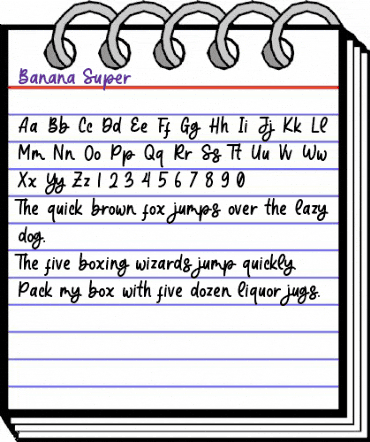 Banana Super
Aa Bb Cc Dd Ee Ff Gg Hh Ii Jj Kk Ll
Mm Nn Oo Pp Qq Rr Ss Tt Uu Vv Ww
Xx Yy Zz 1 2 3 4 5 6 7 8 9 0
The quick brown fox jumps over the lazy
dog.
The five boxing wizards jump quickly.
Pack my box with five dozen liquor jugs.